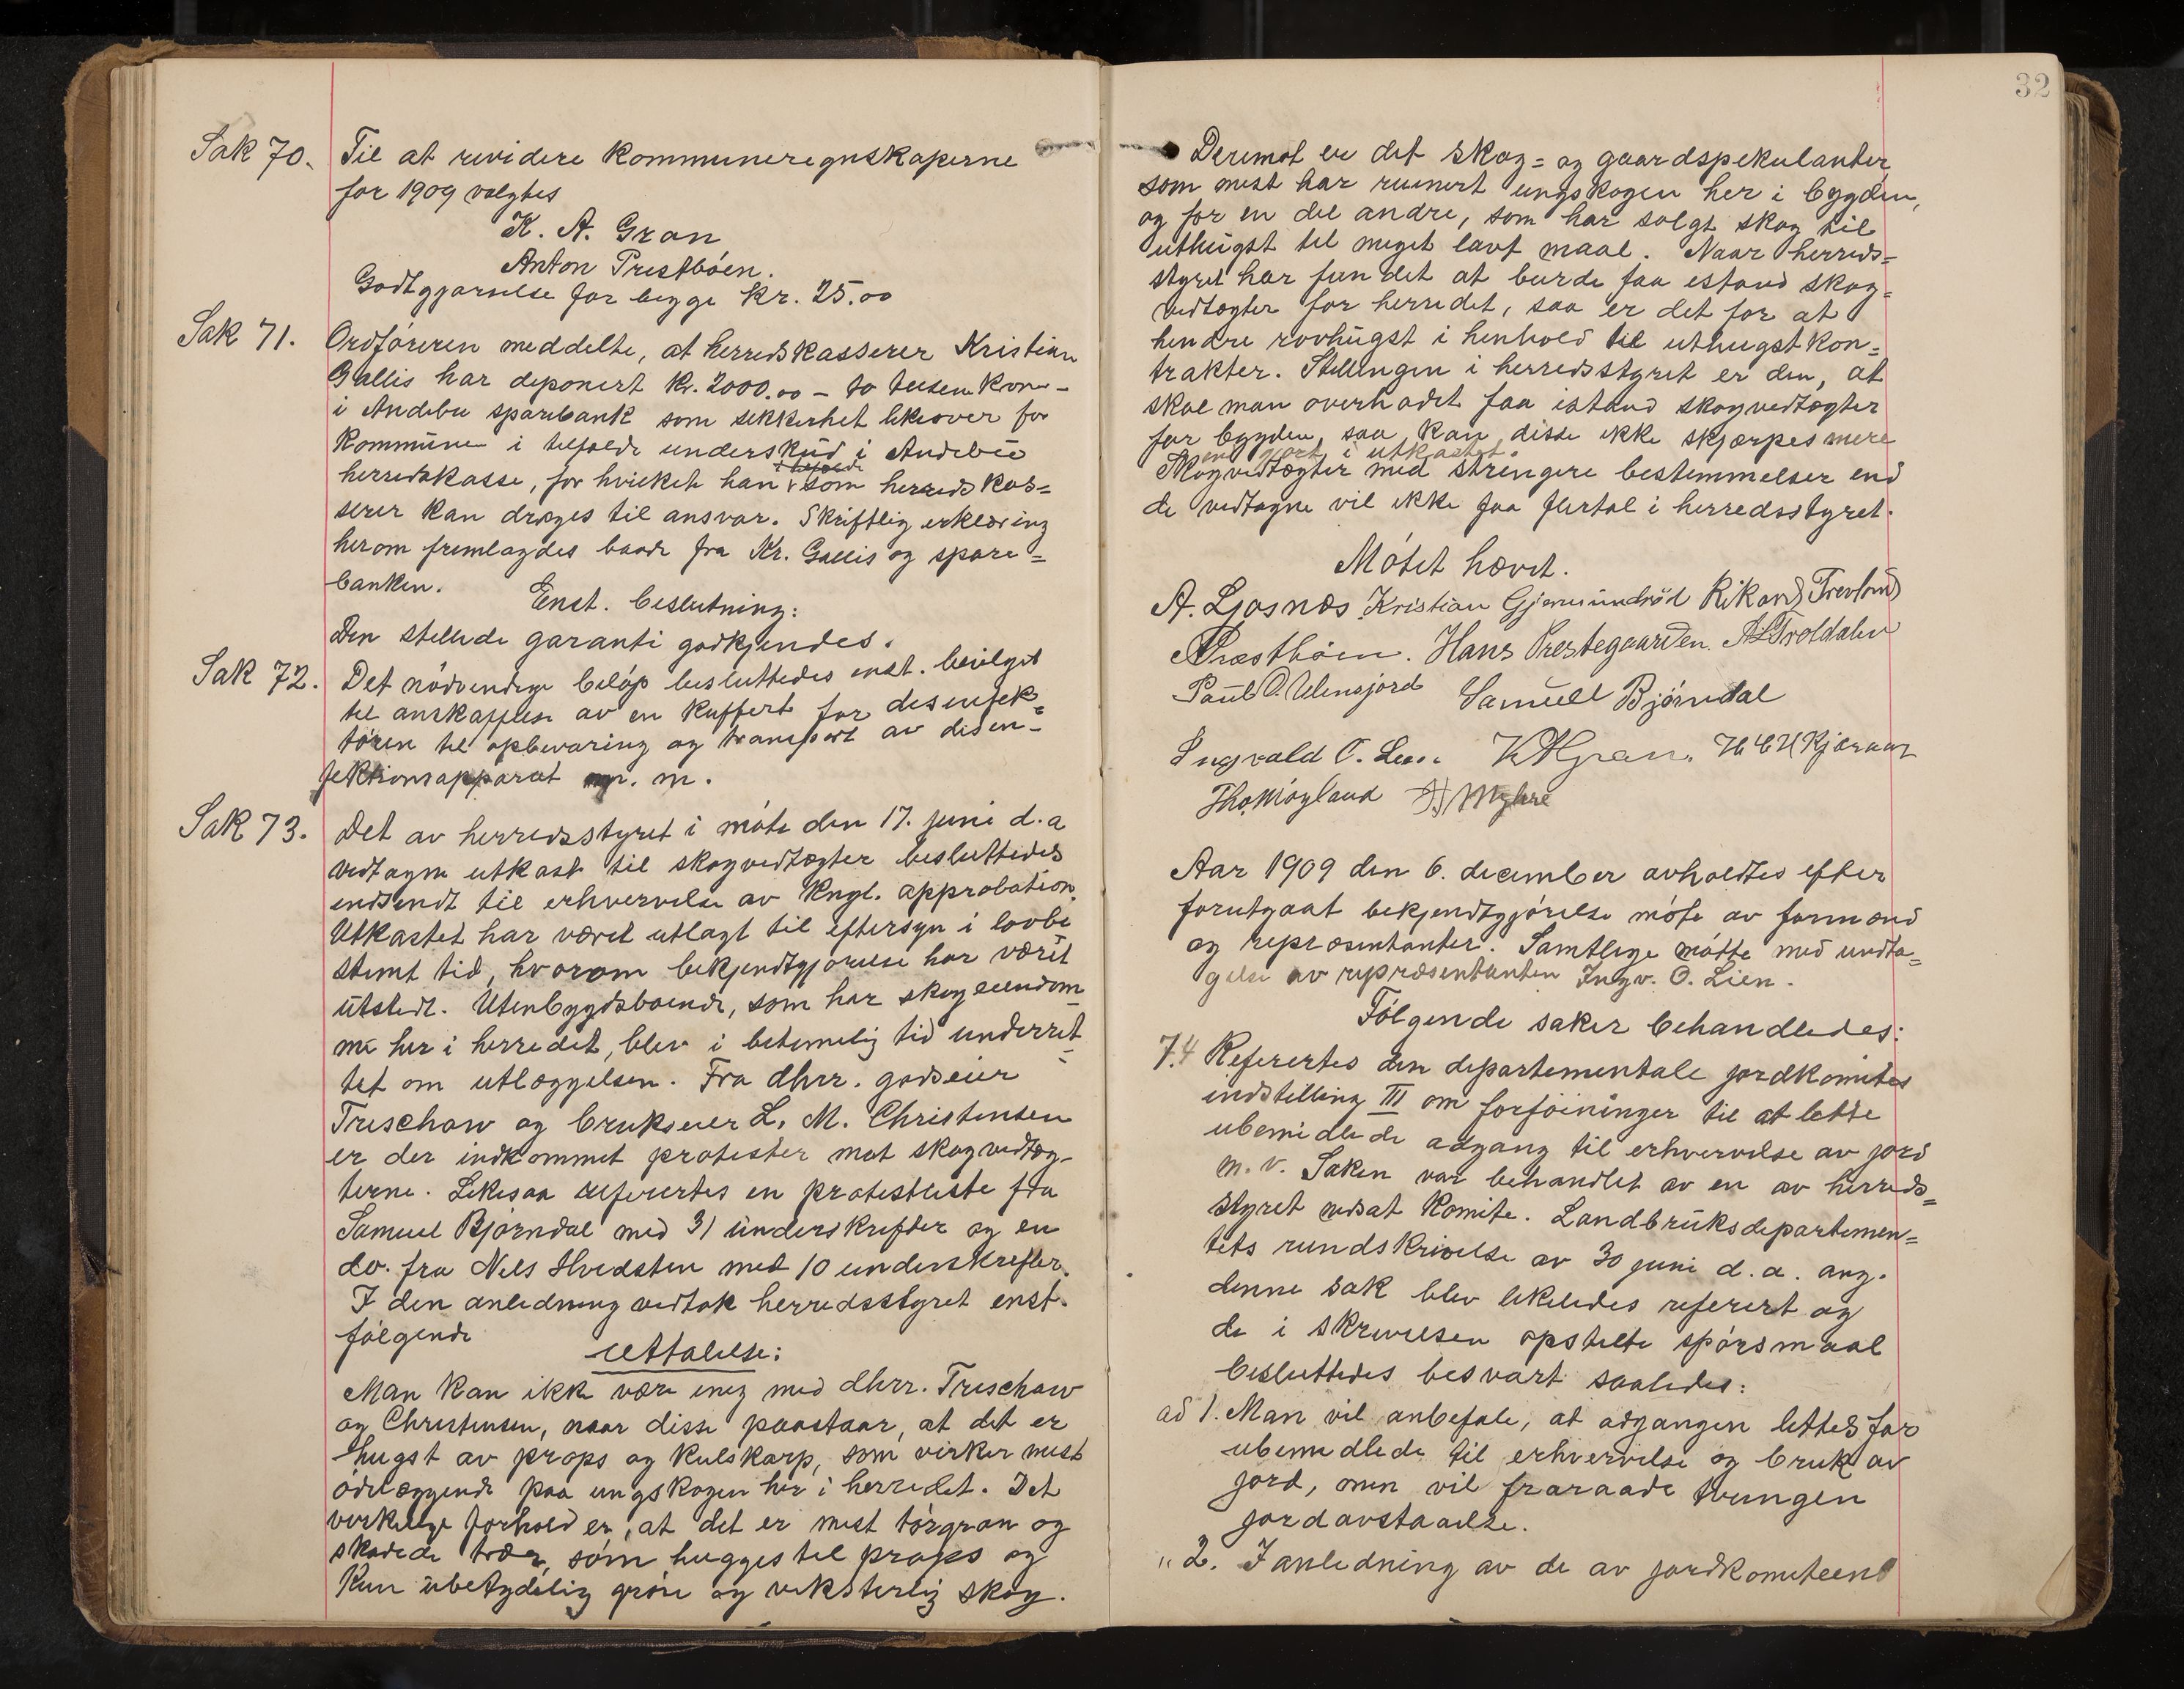 Sak 70. Til at revidere kommuneregnskaperne
for 1909 valgtes
K. A. Gran
Anton Prestbøen.
Godtgjørelse for begge kr. 25.00
Sak 71. Ordføreren meddelte, at herredskasserer Kristian
Gallis har deponert kr. 2000.00 – to tusen kroner –
i Andebu sparebank som sikkerhet likeover for
kommunen i tilfælde underskud i Andebu
i tilfælde
herredskasse, for hvilket han som herredskas=
serer kan drages til ansvar. Skriftlig erklæring
herom fremlagdes baade fra Kr. Gallis og spare=
banken. Enst. beslutning:
Den stillede garanti godkjendes.
Sak 72. Det nødvendige beløp besluttedes enst. bevilget
til anskaffelse av en kuffert for desinfek=
tøren til opbevaring og transport av desin-
fektionsapparat m. m.
Sak 73. Det av herredsstyret i møte den 17. juni d.a
vedtagne utkast til skogvedtægter besluttedes
indsendt til erhvervelse av kngl. approbation.
Utkastet har været utlagt til eftersyn i lovbe
stemt tid, hvorom bekjendtgjørelse har været
utstedt. Utenbygdsboende, som har skogeiendom
me her i herredet, blev i betimelig tid underret=
tet om utlæggelsen. Fra dhrr. godseier
Treschow og brukseier L. M. Christensen
er der indkommet protester mot skogvedtæg-
terne. Likesaa referertes en protestliste fra
Samuel Bjørndal med 31 underskrifter og en
do. fra Nils Hvidsten med 10 underskrifter.
I den anledning vedtok herredsstyret enst.
følgende
uttalelse:
Man kan ikke være enig med dhrr. Treschow
og Christensen, naar disse paastaar, at det er
hugst av props og kulskarp, som virker mest
ødelæggende paa ungskogen her i herredet. Det
virkelige forhold er, at det er mest tørgran og
skadede trær, som hugges til props og
kun ubetydelig grøn og veksterlig skog.
32
Derimot er det skog= og gaardspekulanter,
som mest har ruinert ungskogen her i bygden,
og for en del andre, som har solgt skog til
uthugst til meget lavt maal. Naar herreds=
styret har fundet at burde faa istand skog=
vedtægter for herredet, saa er det for at
hindre rovhugst i henhold til uthugstkon=
trakter. Stillingen i herredsstyret er den, at
skal man overhodet faa istand skogvedtægter
for bygden, saa kan disse ikke skjærpes mere
end gjort i utkastet.
Skogvedtægter med strengere bestemmelser end
de vedtagne vil ikke faa flertal i herredsstyret.
Møtet hævet.
A. Ljosnæs Kristian Gjermundrød Rikard Trevland
APræstbøen. Hans Prestegaarden. A L Troldalen
Paul O. Ulensjord Samuell Bjørndal
Ingvald O. Lien. K A Gran. H C H Kjæraas
Tho. Møyland H Myhre
Aar 1909 den 6. december avholdtes efter
forutgaat bekjendtgjørelse møte av formænd
og repræsentanter. Samtlige møtte med undta=
gelse av repræsentanten Ingv. O. Lien.
Følgende saker behandledes:
74 Referertes den departementale jordkomites
indstilling III om forføininger til at lette
ubemidlede adgang til erhvervelse av jord
m. v. Saken var behandlet av en av herreds=
styret nedsat komite. Landbruksdepartemen=
tets rundskrivelse av 30 juni d. a. ang.
denne sak blev likeledes referert og
de i skrivelsen opstilte spørsmaal
besluttedes besvart saaledes:
ad 1. Man vil anbefale, at adgangen lettes for
ubemidlede til erhvervelse og bruk av
jord, men vil fraraade tvungen
jordavstaaelse.
" 2. I anledning av de av jordkomiteens